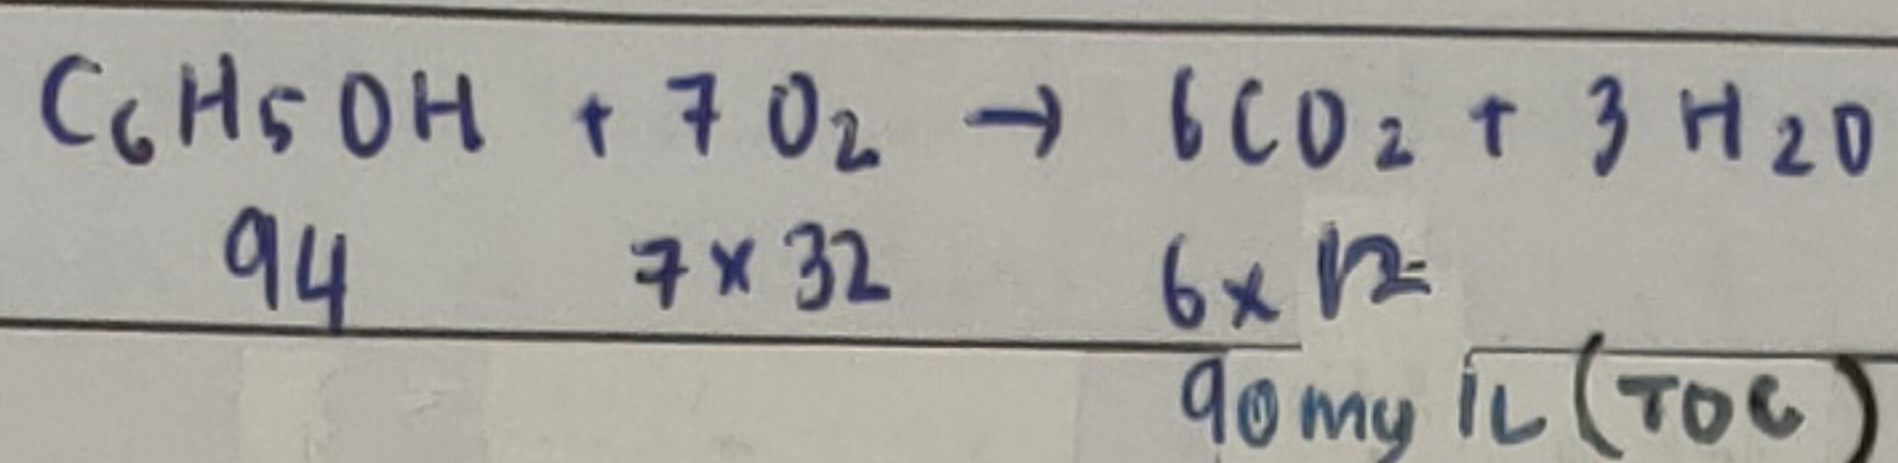 C₆H₅OH + 7O₂ → 6CO₂ + 3H₂O
94 7×32 6×12
90mg/L (TOC)